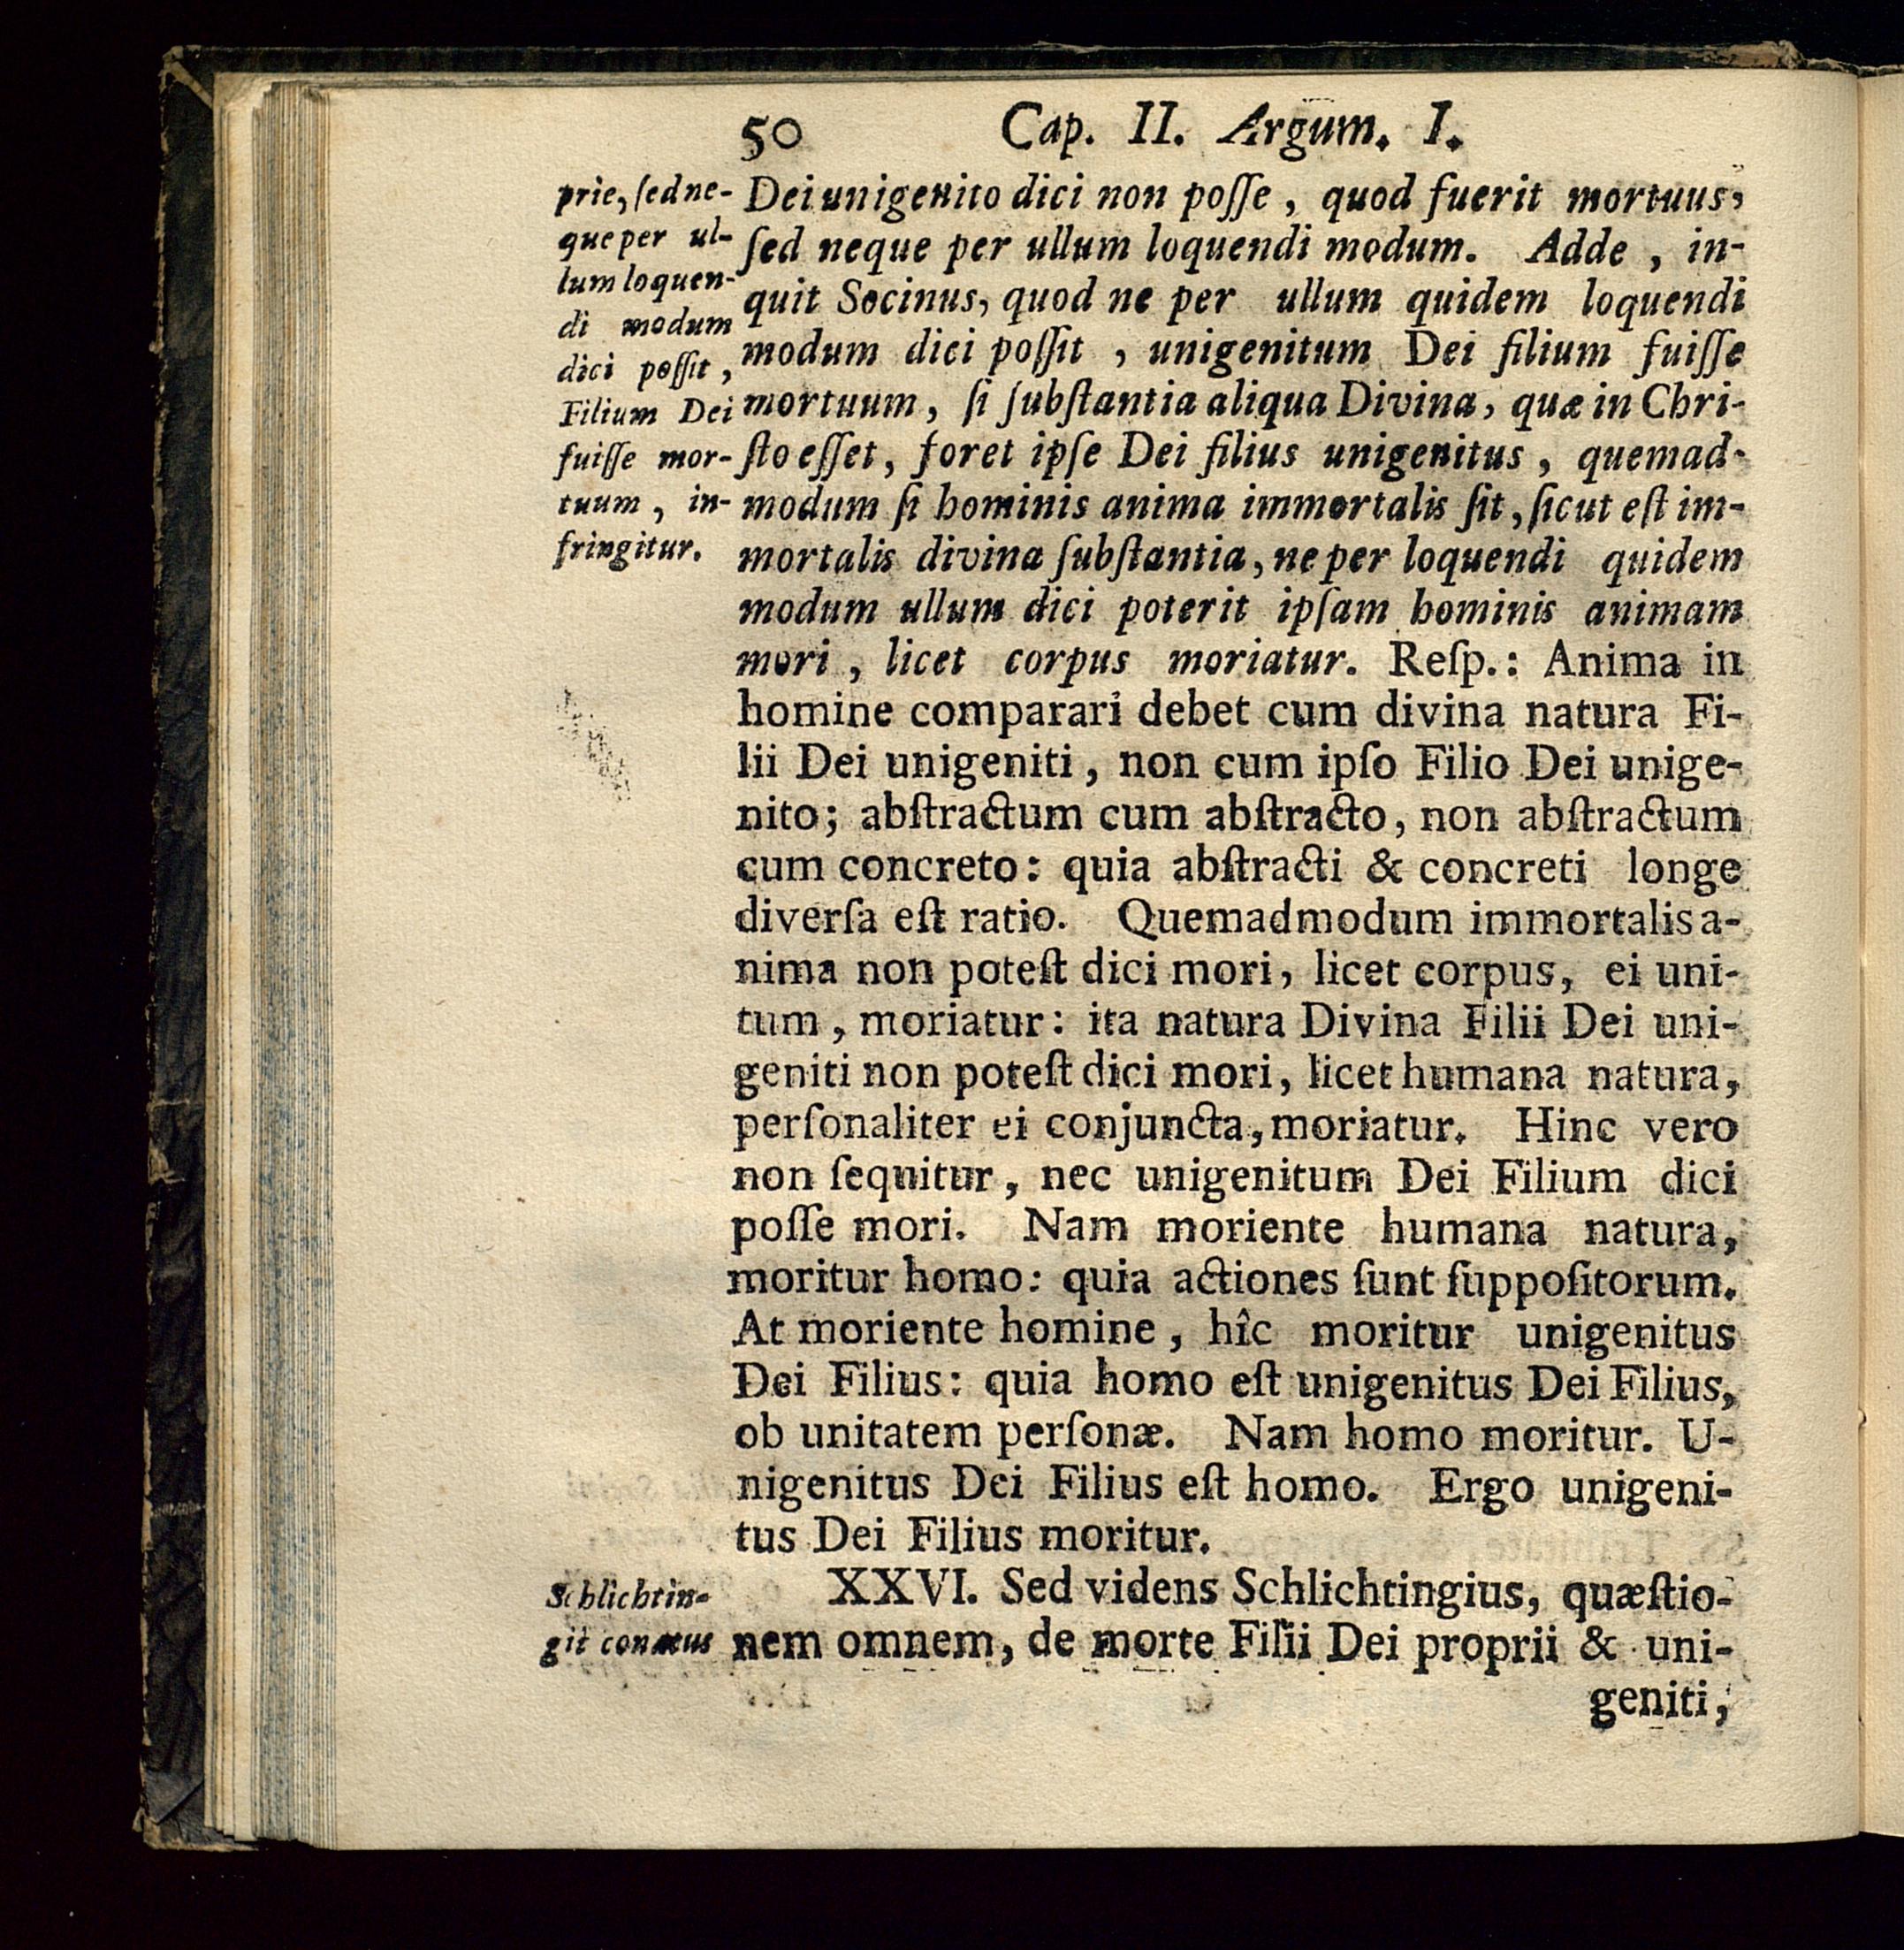 50 Cap. II. Argum. I.
prie, ſed ne-
que per ul-
lum loquen-
di modum
dici poſſit,
Filium Dei
fuiſſe mor-
tuum, in-
fringitur.
Dei unigenito dici non poſſe, quod fuerit mortuus,
ſed neque per ullum loquendi modum. Adde, in-
quit Socinus, quod ne per ullum quidem loquendi
modum dici poſſit, unigenitum Dei filium fuiſſe
mortuum, ſi ſubſtantia aliqua Divina, quæ in Chri-
ſto eſſet, foret ipſe Dei filius unigenitus, quemad-
modum ſi hominis anima immortalis ſit, ſicut eſt im-
mortalis divina ſubſtantia, ne per loquendi quidem
modum ullum dici poterit ipſam hominis animam
mori, licet corpus moriatur. Reſp.: Anima in
homine comparari debet cum divina natura Fi-
lii Dei unigeniti, non cum ipſo Filio Dei unige-
nito; abſtractum cum abſtracto, non abſtractum
cum concreto: quia abſtracti & concreti longe
diverſa eſt ratio. Quemadmodum immortalis a-
nima non poteſt dici mori, licet corpus, ei uni-
tum, moriatur: ita natura Divina Filii Dei uni-
geniti non poteſt dici mori, licet humana natura,
perſonaliter ei conjuncta, moriatur. Hinc vero
non ſequitur, nec unigenitum Dei Filium dici
poſſe mori. Nam moriente humana natura,
moritur homo: quia actiones ſunt ſuppoſitorum.
At moriente homine, hîc moritur unigenitus
Dei Filius: quia homo eſt unigenitus Dei Filius,
ob unitatem perſonæ. Nam homo moritur. U-
nigenitus Dei Filius eſt homo. Ergo unigeni-
tus Dei Filius moritur.
Schlichtin-
gii conatus
XXVI. Sed videns Schlichtingius, quæſtio-
nem omnem, de morte Filii Dei proprii & uni-
geniti,